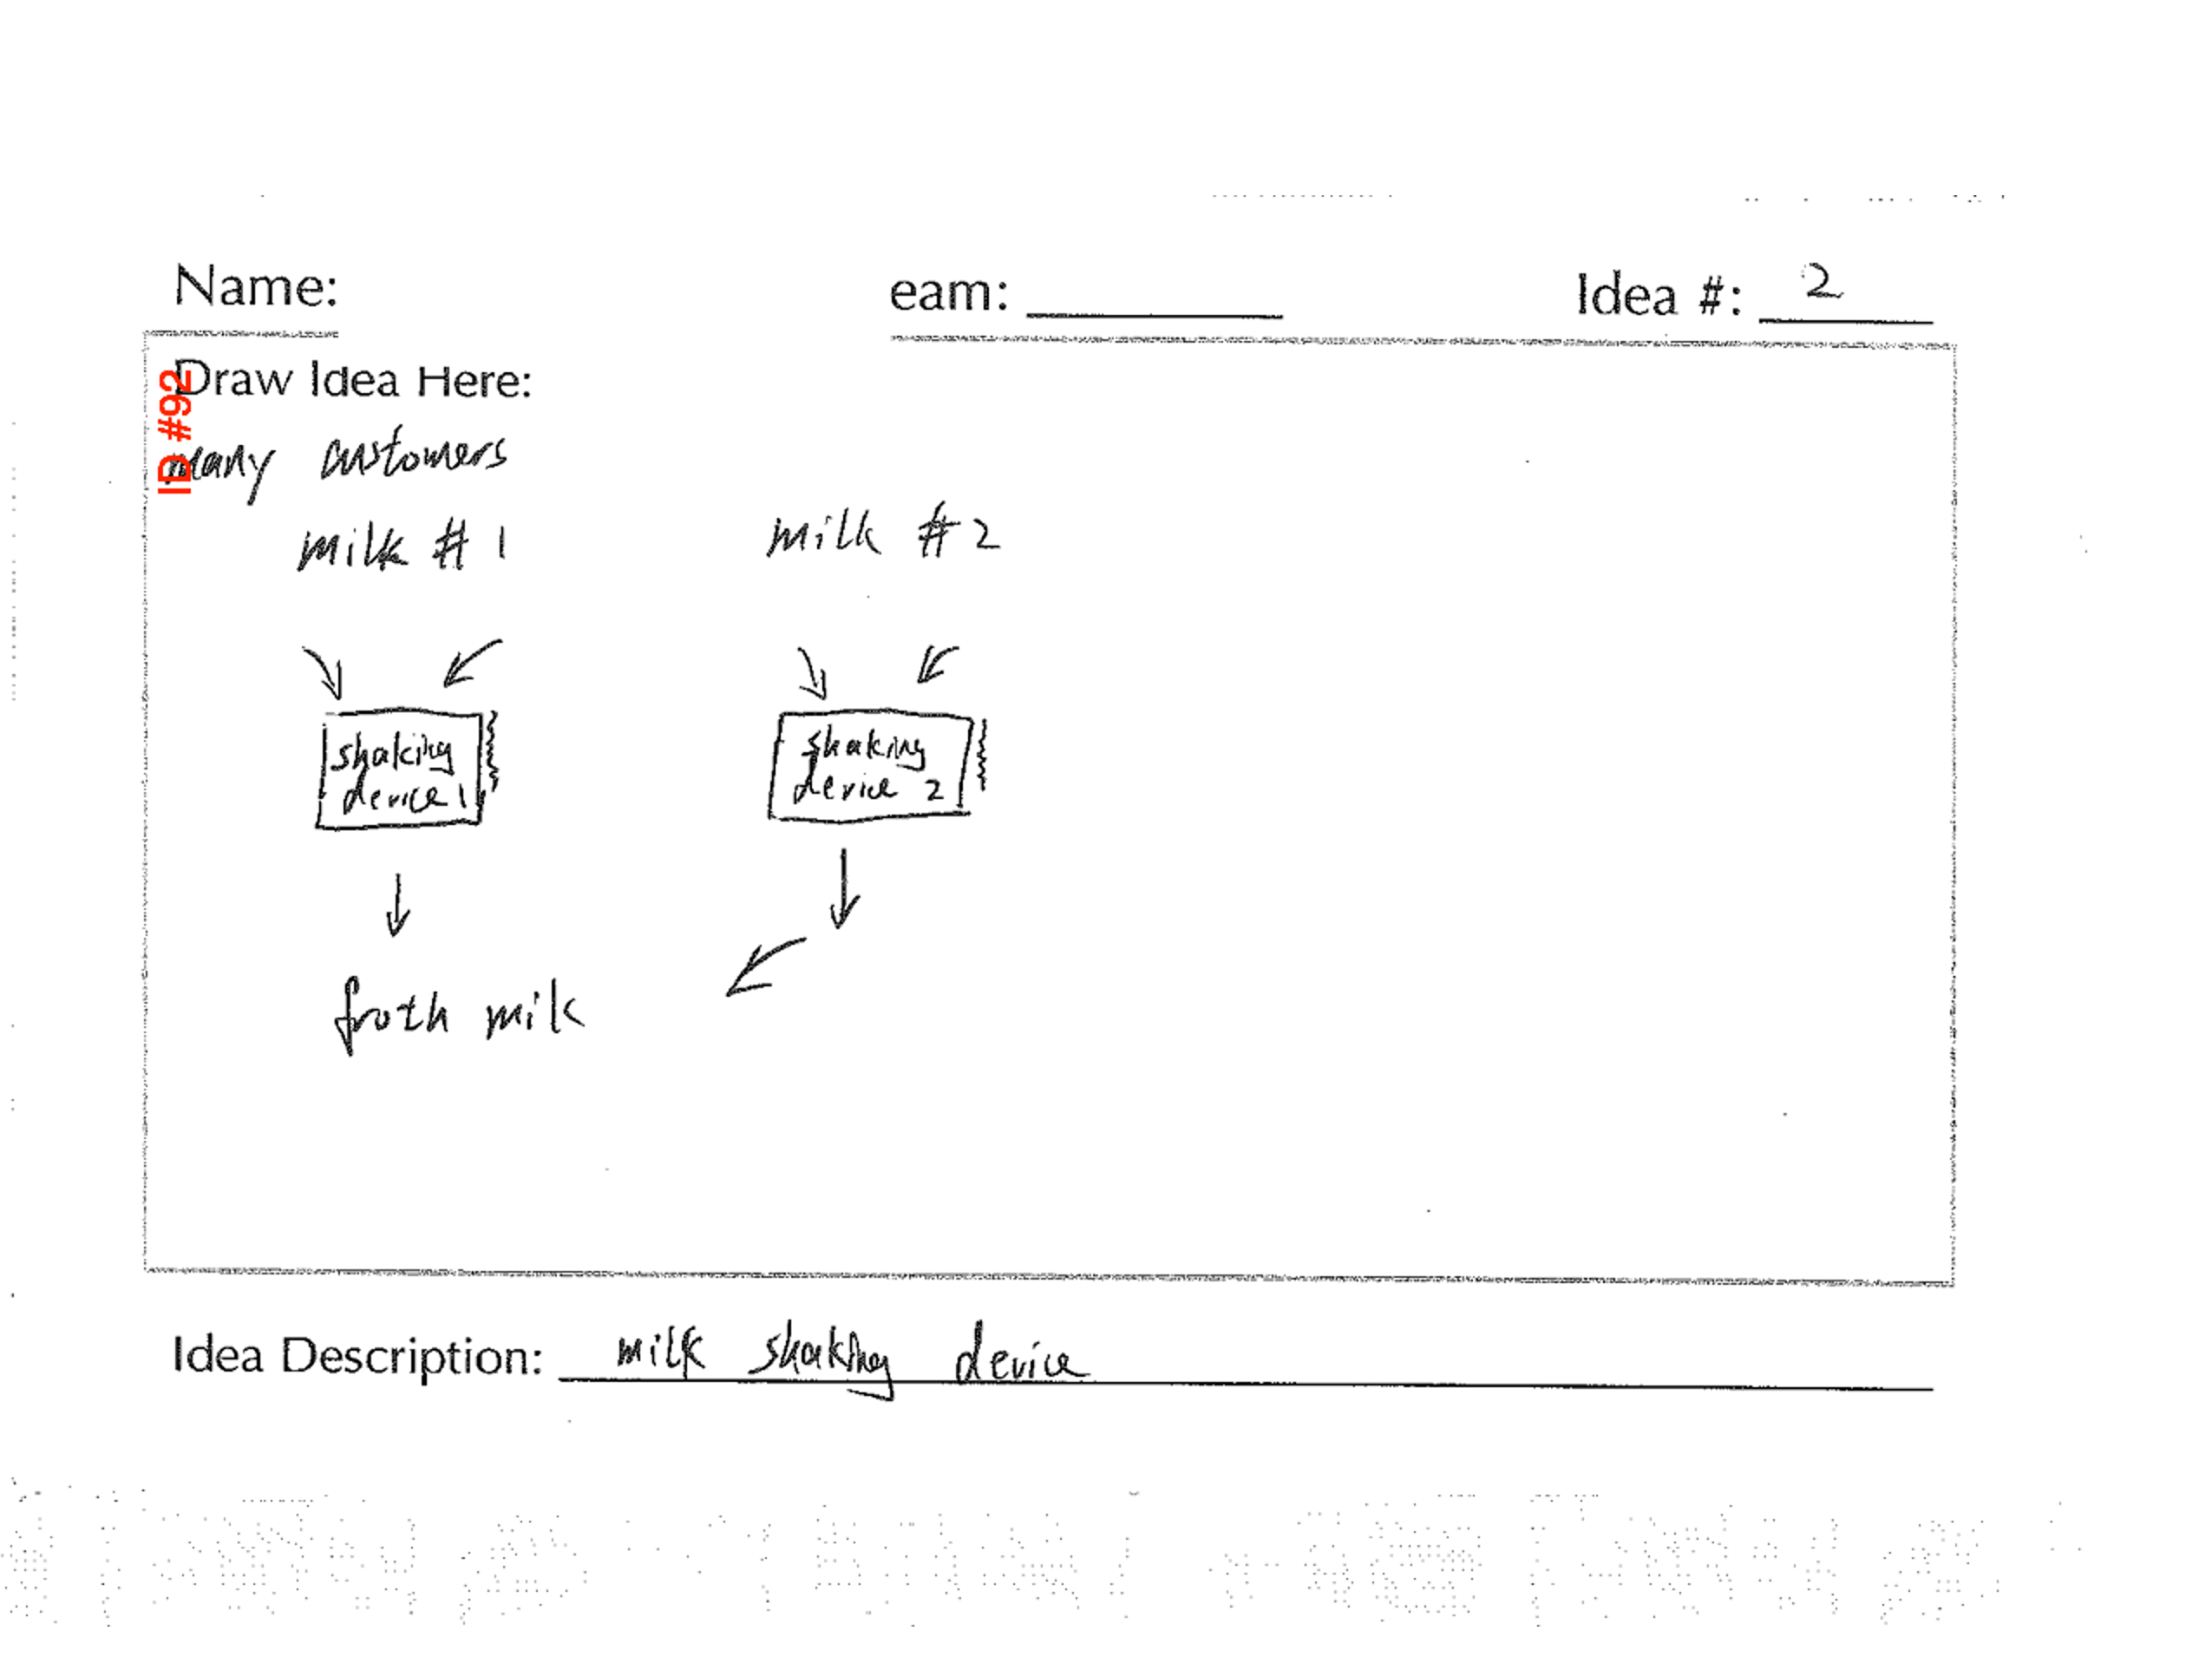 Name: eam: Idea #: 2
Draw Idea Here:
ID #92
many customers
milk #1 milk #2
shaking device 1
shaking device 2
froth milk
Idea Description: milk shaking device